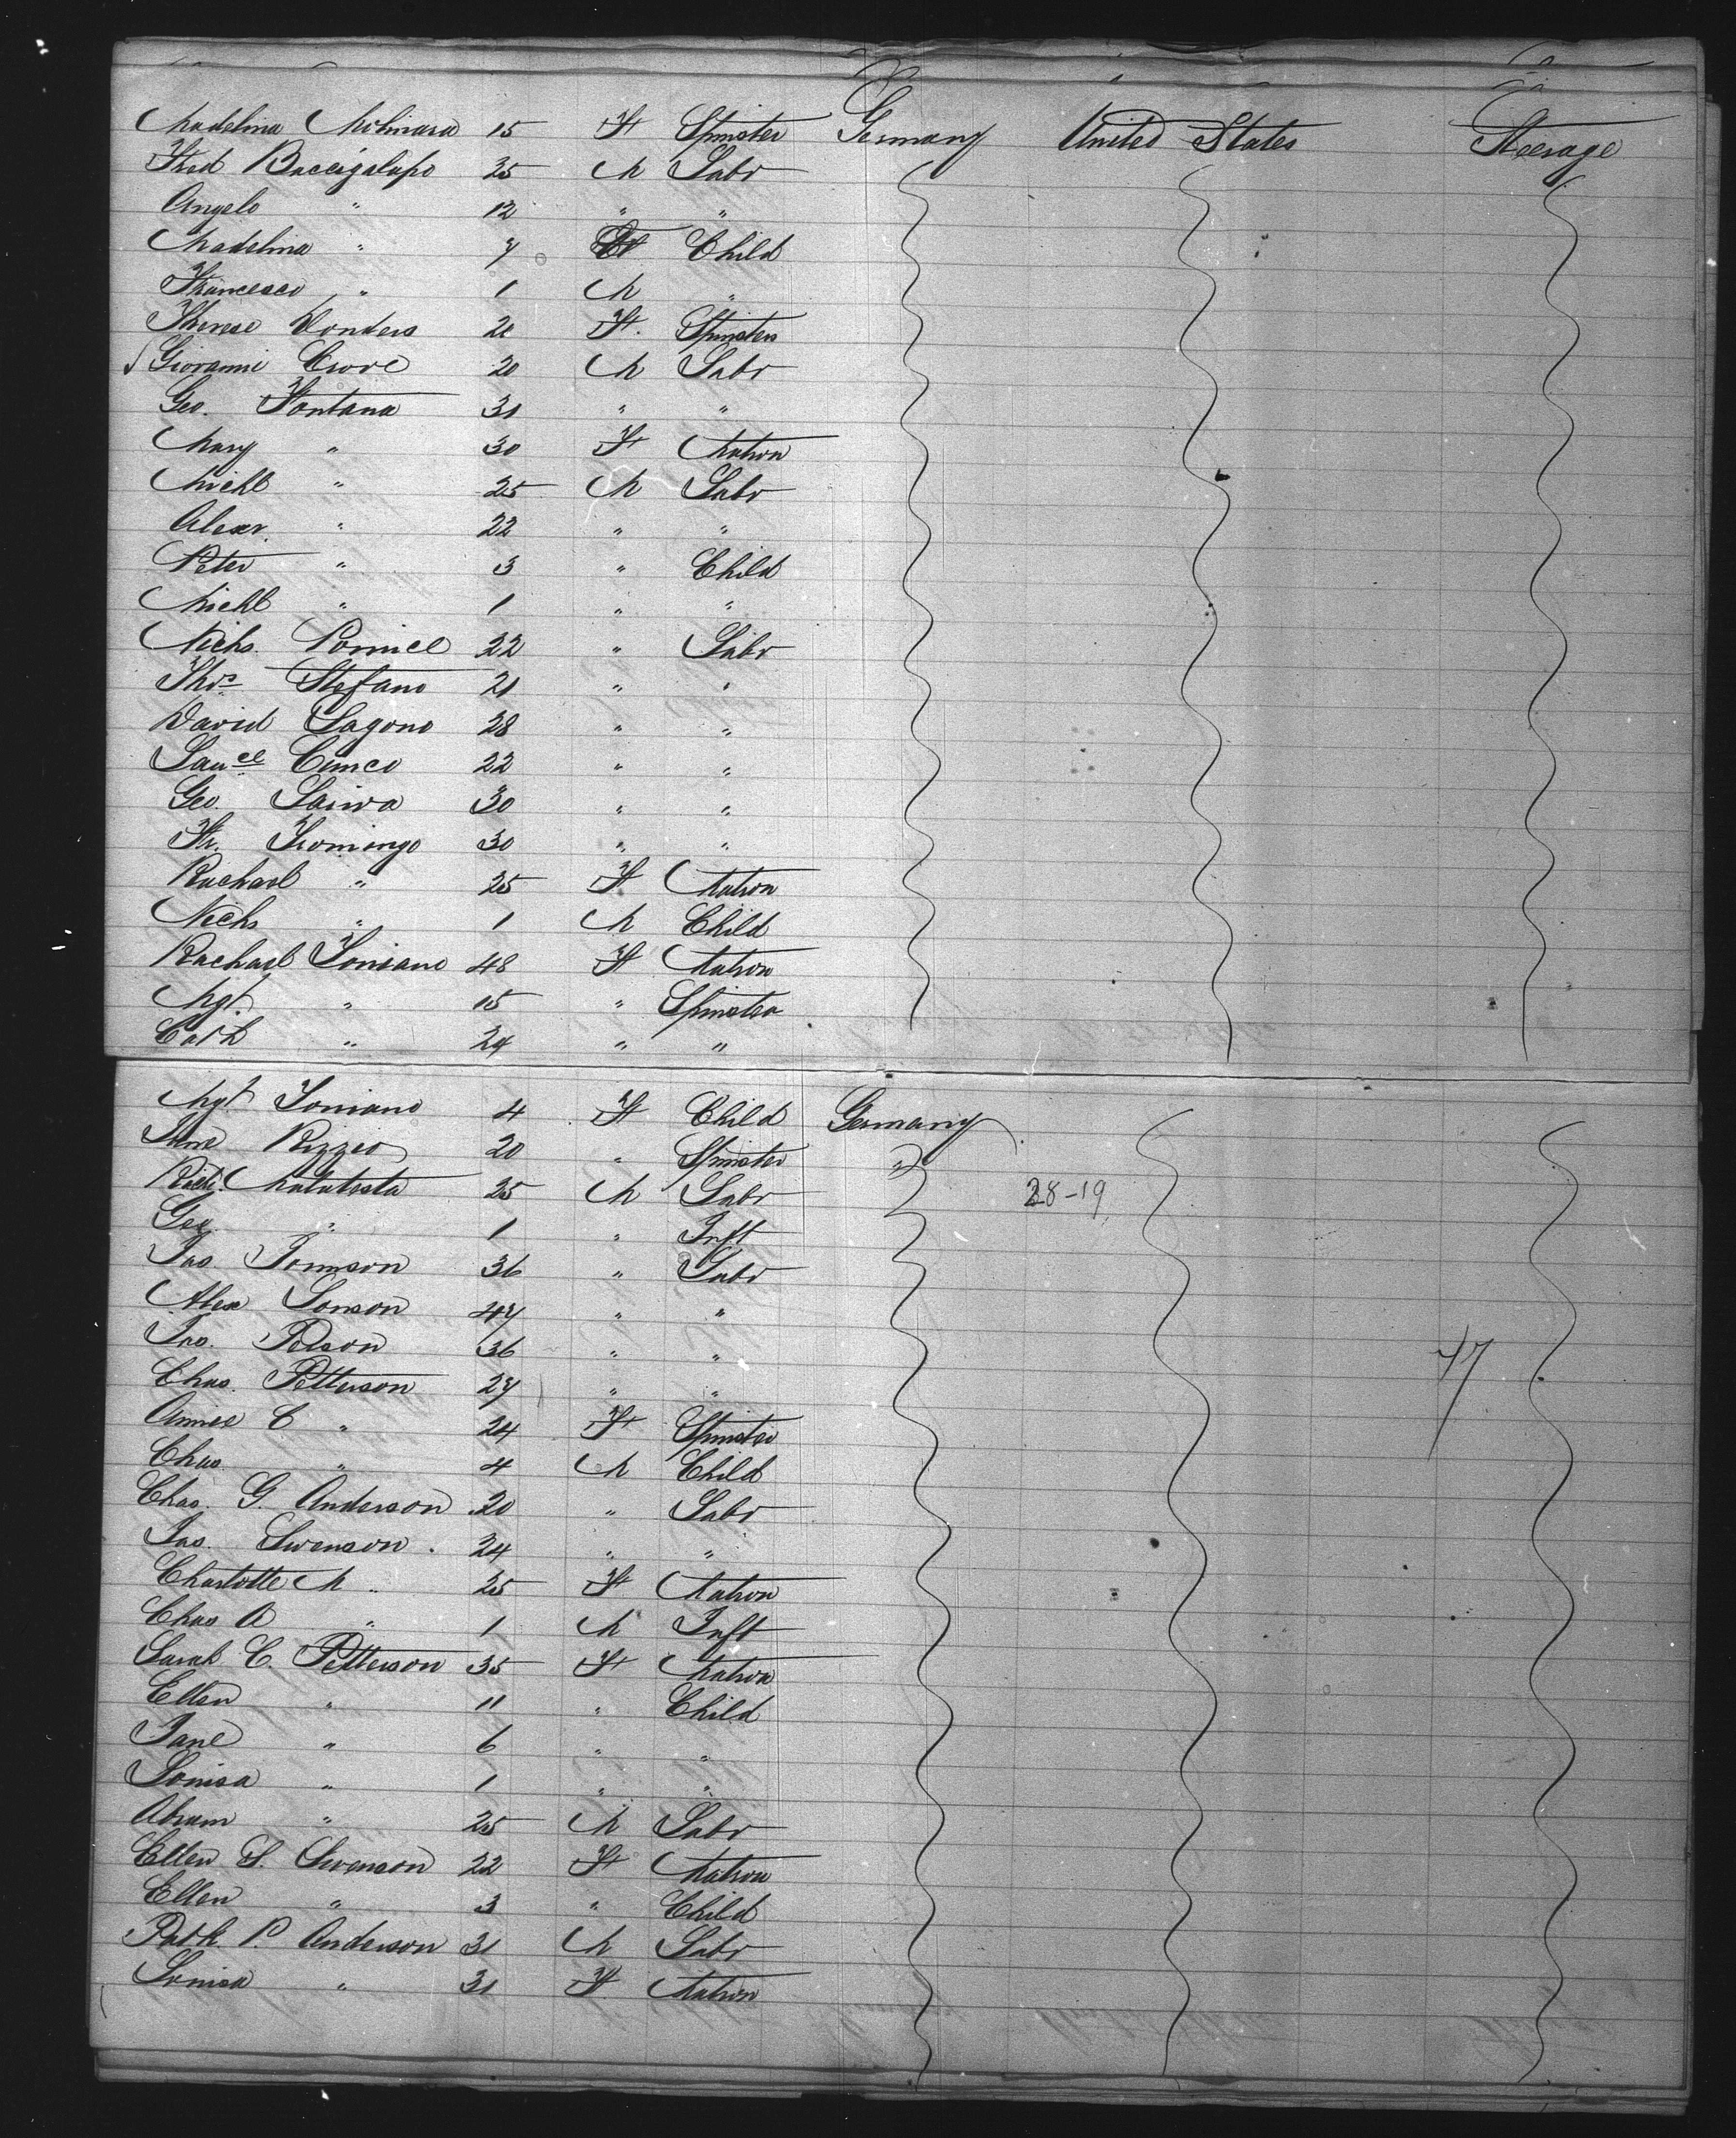 Madelina Molinara 15 F Spinster Germany United States Steerage
Fred Baccigalupo 25 M Labr
Angelo " 12 " "
Madelina " 7 F Child
Francesco " 1 M "
Therese Donders 20 F. Spinster
Giovanni Crove 20 M Labr
Geo. Fontana 31 " "
Mary " 30 F Matron
Michl " 25 M Labr
Alexr. " 22 " "
Peter " 3 " Child
Michl " 1 " "
Nichs. Pomice 22 " Labr
Thos Stefano 21 " "
David Lagono 28 " "
Cunco 22 " "
Geo. Saiva 30 " "
Fr. Fromingo 30 " "
Rachael " 25 F Matron
Nichs " 1 M Child
Rachael Toniano 48 F Matron
Mgt " 15 " Spinster
Cath " 24 " "
Mgt Toniano 4 F Child Germany
Jane Rizzio 20 " Spinster "
Malatesta 25 M Labr 28-19
Geo. " 1 " Inft
Jas Tomson 36 " Labr
Alex Lonson 47 " "
Jno. Pelson 36 " " 47
Chas. Petterson 27 " "
Annee C " 24 F Spinster
Chas. " 4 M Child
Chas. G. Anderson 20 " Labr
Jas. Swenson 24 " "
Charlotte M " 25 F Matron
Chas A " 1 M Inft
Sarah C. Petterson 35 F Matron
Ellen " 11 " Child
Jane " 6 " "
Louisa " 1 " "
Abram " 25 M Labr
Ellen S. Swenson 22 F Matron
Ellen " 3 " Child
Patk. P. Anderson 31 M Labr
Louisa " 31 F. Matron